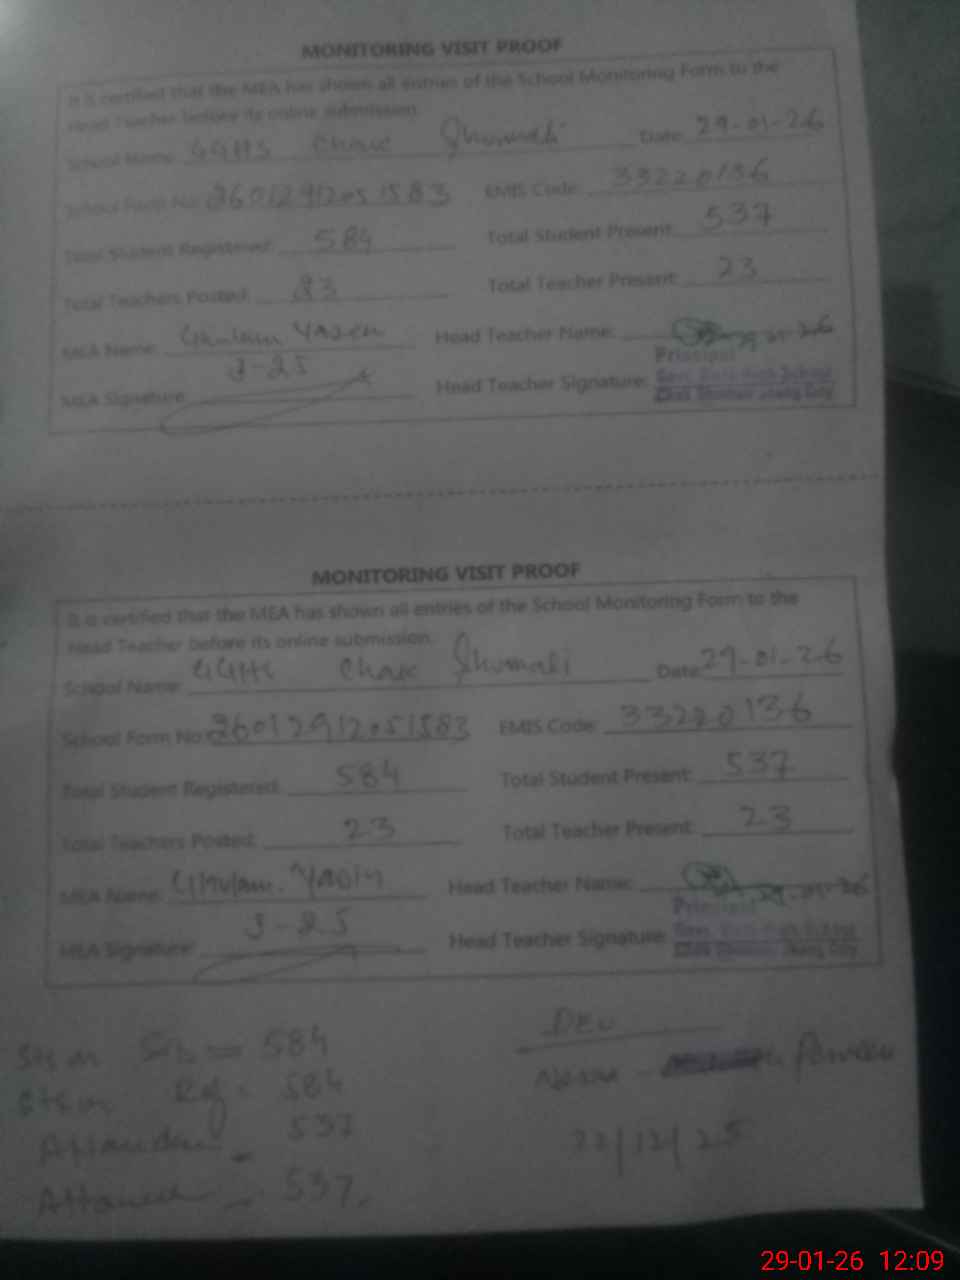 MONITORING VISIT PROOF
It is certified that the MEA has shown all entries of the School Monitoring Form to the
Head Teacher before its online submission.
School Name: GGHS Chak Shumali Date: 29-01-26
School Form No: 26012912051583 EMIS Code: 33220136
Total Student Registered: 584 Total Student Present: 537
Total Teachers Posted: 23 Total Teacher Present: 23
MEA Name: Ghulam Yasin Head Teacher Name:
3-25 Principal
MEA Signature: Head Teacher Signature: Govt. Girls High School
MONITORING VISIT PROOF
It is certified that the MEA has shown all entries of the School Monitoring Form to the
Head Teacher before its online submission.
School Name: GGHS Chak Shumali Date: 29-01-26
School Form No: 26012912051583 EMIS Code: 33220136
Total Student Registered: 584 Total Student Present: 537
Total Teachers Posted: 23 Total Teacher Present: 23
MEA Name: Ghulam Yasin Head Teacher Name: 29-01-26
3-25 Principal
MEA Signature: Head Teacher Signature: Govt. Girls High School
= 584
Reg = 584
537
537
Name - Parveen
22/12/25
29-01-26 12:09